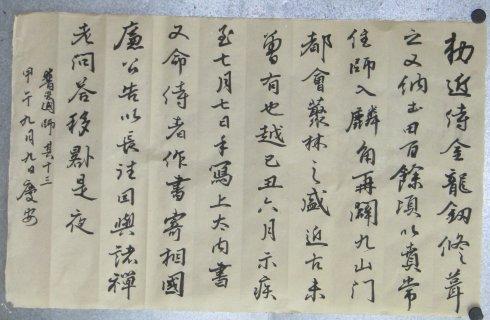 勅近侍金龍釰修葺
之又納土田百餘頃以賁常
住師入麟角再闢九山門
都會叢林之盛近古未
曾有也越己丑六月示疾
至七月七日手寫上大內書
又命侍者作書寄相國
廉公告以長往因與諸禪
老問答移晷是夜
普覺國師 其十三
甲午九月九日慶安